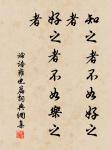 知之者不如好之
者好之者不如樂之
者
論語雍也篇詞典網集